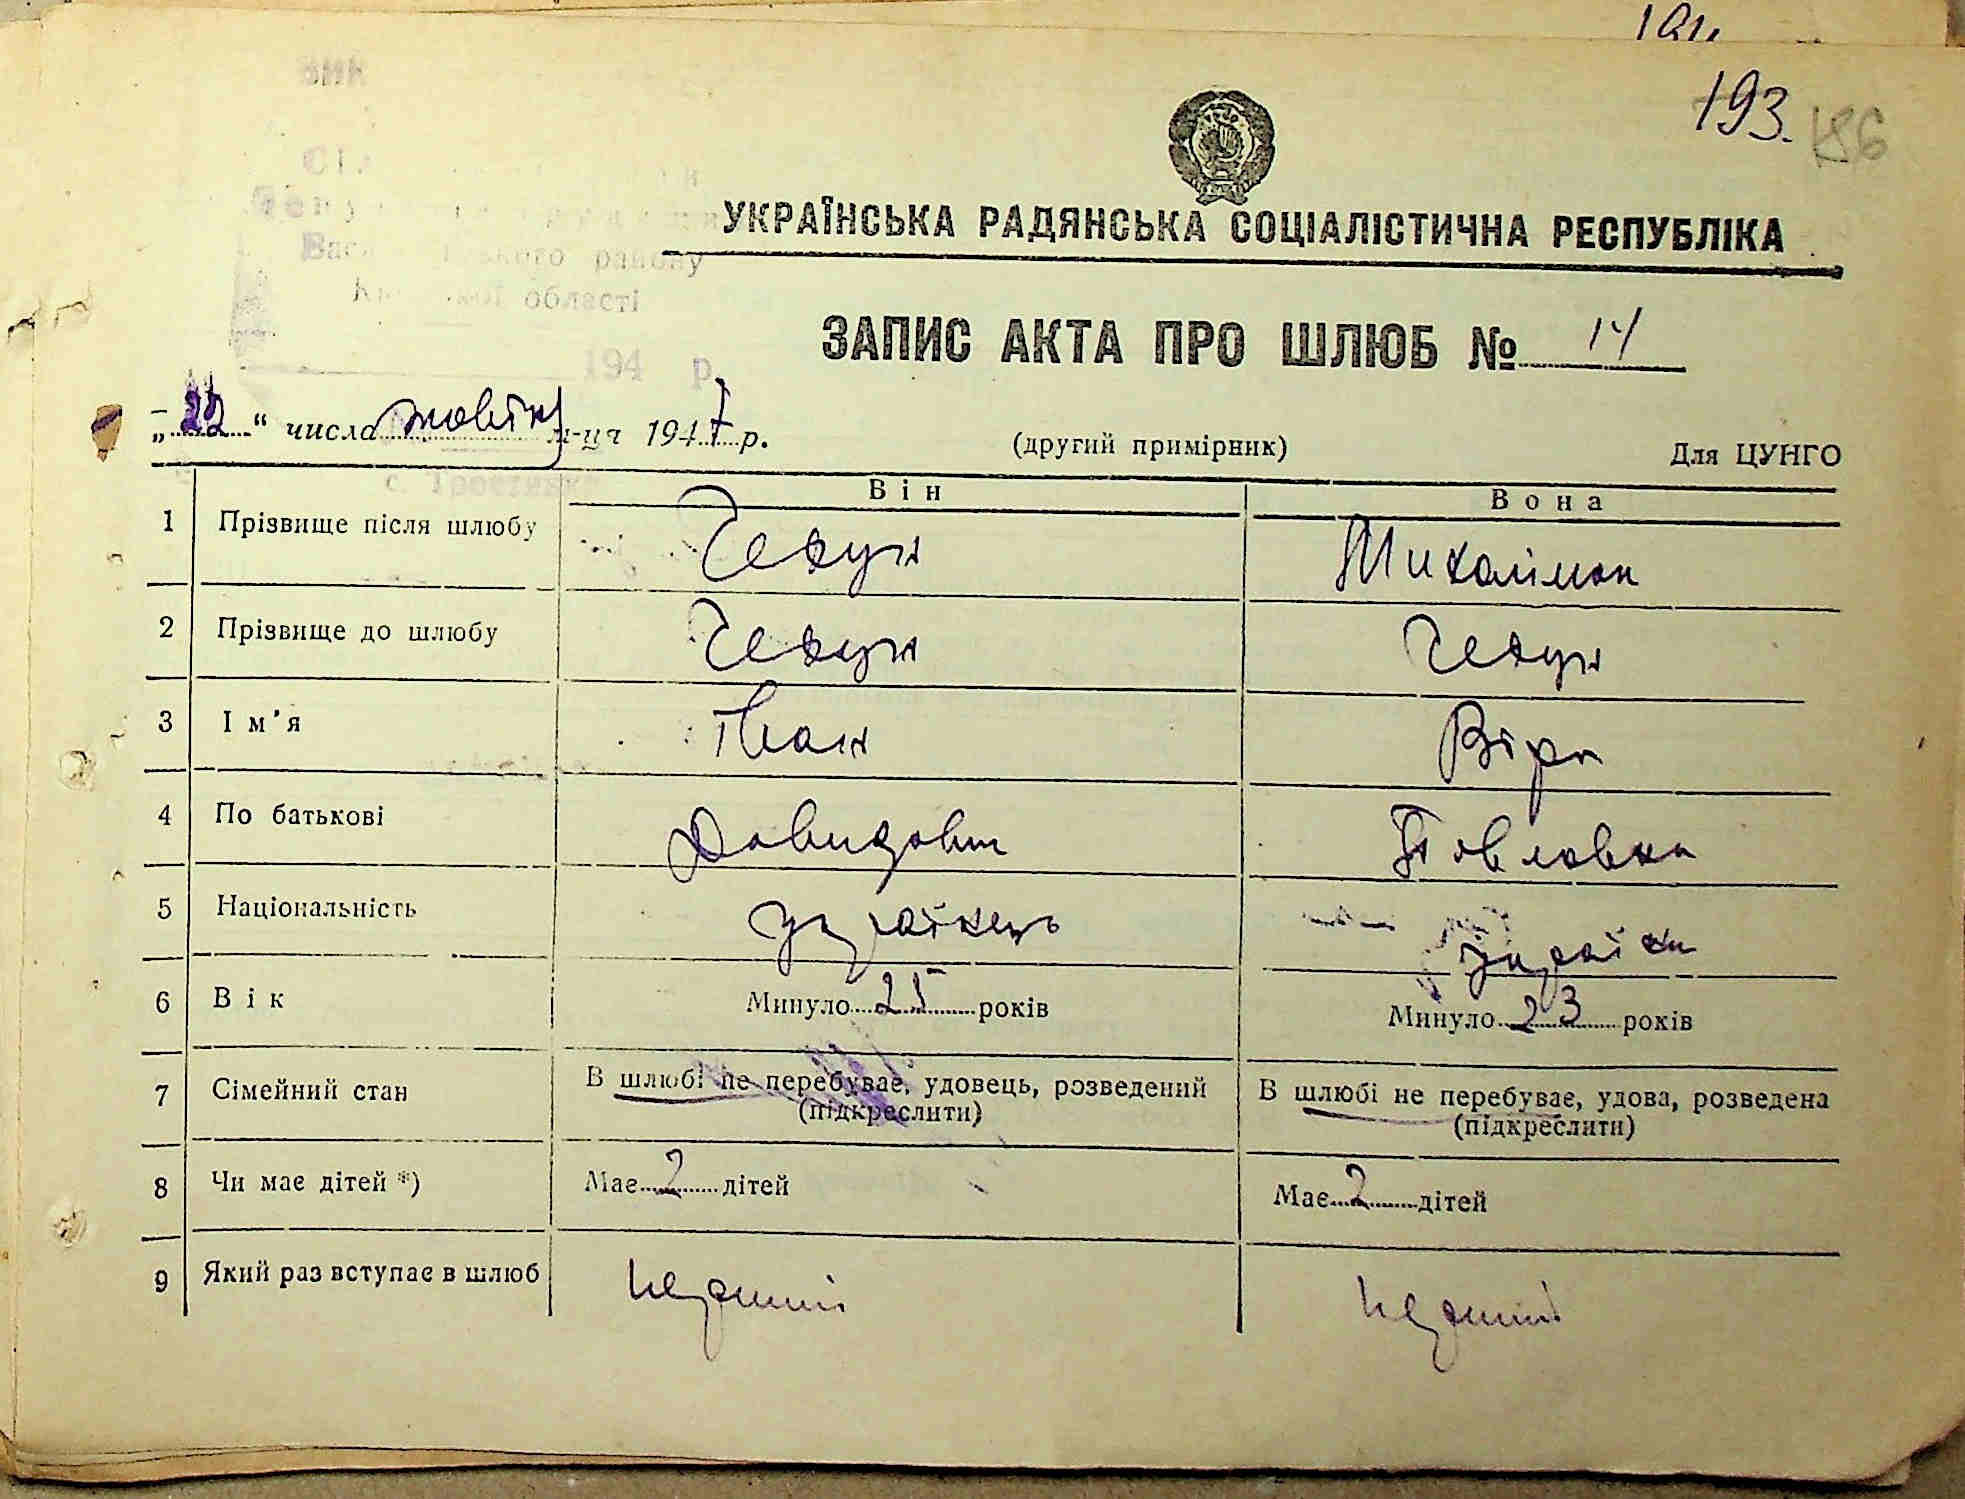 193. 186
УКРАЇНСЬКА РАДЯНСЬКА СОЦІАЛІСТИЧНА РЕСПУБЛІКА
ЗАПИС АКТА ПРО ШЛЮБ № 14
"22" числа жовтня м-ця 1947 р. (другий примірник) Для ЦУНГО
Він Вона
1 Прізвище після шлюбу Чевун Михалімон
2 Прізвище до шлюбу Чевун Чевун
3 Ім'я Іван Віра
4 По батькові Давидович Павловна
5 Національність українець українка
6 Вік Минуло 25 років Минуло 23 років
7 Сімейний стан В шлюбі не перебуває, удовець, розведений (підкреслити) В шлюбі не перебуває, удова, розведена (підкреслити)
8 Чи має дітей *) Має 2 дітей Має 2 дітей
9 Який раз вступає в шлюб перший перший